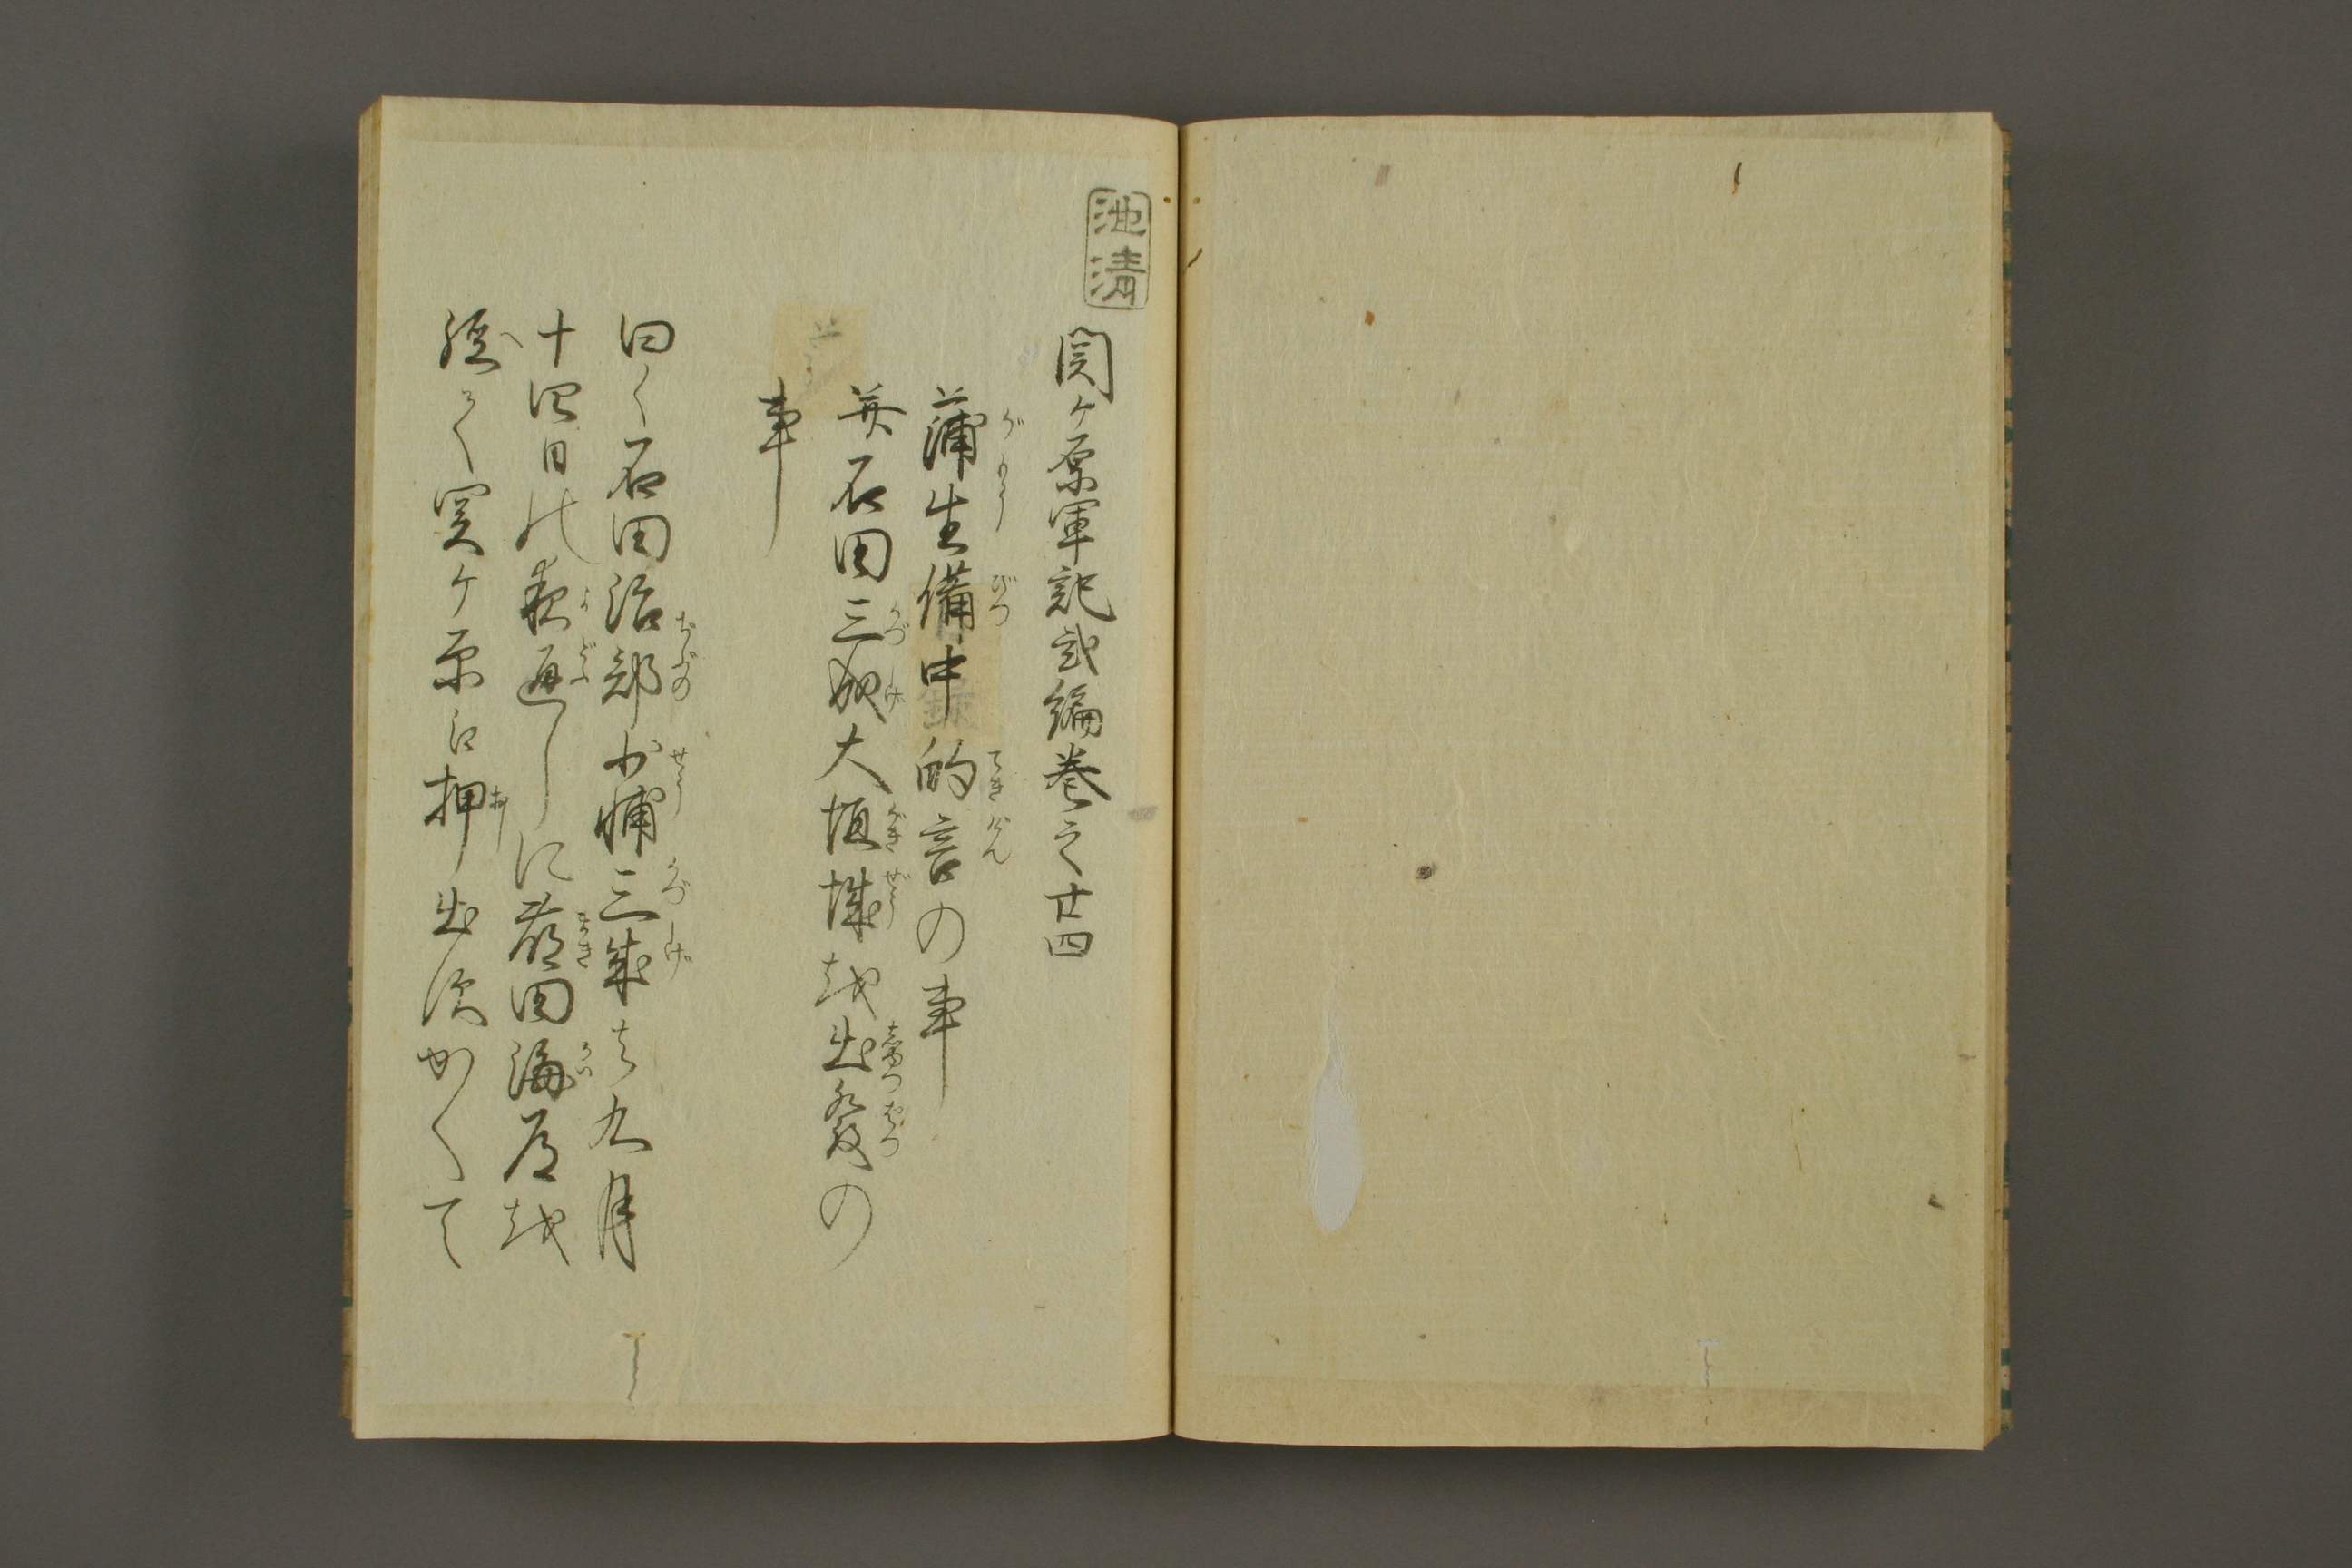 池清
関ヶ原軍記弐編巻之廿四
蒲生備中的言の事
并石田三成大垣城越出発の
事
曰く石田治部少輔三成ハ九月
十四日の夜通しに蒔田海道越
経て関ヶ原江押出須かくて